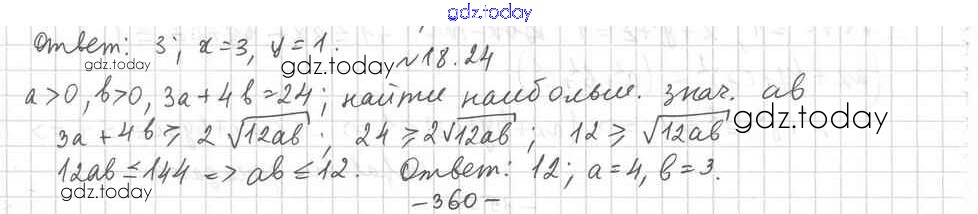 gdz.today
Ответ: 3; x=3, y=1.
gdz.today
gdz.today
№18.24
a>0, b>0, 3a+4b=24; найти наибольш. знач. ab
3a+4b ≥ 2√12ab; 24 ≥ 2√12ab; 12 ≥ √12ab
gdz.today
12ab ≤ 144 => ab ≤ 12. Ответ: 12; a=4, b=3.
gdz.today
gdz.today
–360–